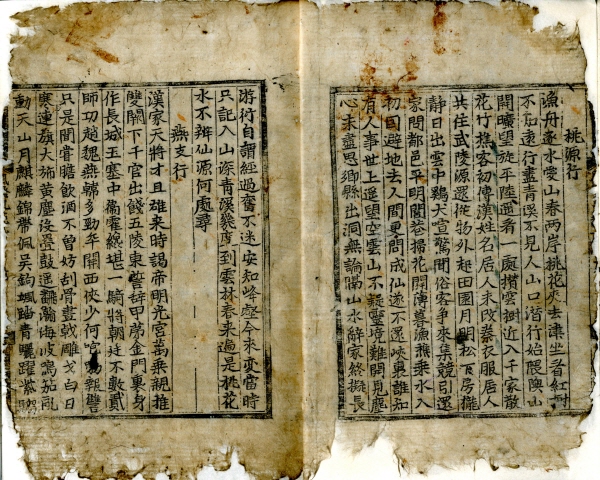 桃源行
漁舟逐水愛山春兩岸桃花夾去津坐看紅樹
不知遠行盡青溪不見人山口潛行始隈隩山
開曠望旋平陸遙看一處攢雲樹近入千家散
花竹樵客初傳漢姓名居人未改秦衣服居人
共住武陵源還從物外起田園月明松下房櫳
靜日出雲中鷄犬喧驚聞俗客爭來集競引還
家問都邑平明閭巷掃花開薄暮漁樵乘水入
初因避地去人間更問成仙遂不還峽裏誰知
有人事世上遙望空雲山不疑靈境難聞見塵
心未盡思鄉縣出洞無論隔山水辭家終擬長
游衍自謂經過舊不迷安知峰壑今來變當時
只記入山深青溪幾度到雲林春來遍是桃花
水不辨仙源何處尋
燕支行
漢家天將才且雄來時謁帝明光宮萬乘親推
雙闕下千官出餞五陵東誓辭甲第金門裏身
作長城玉塞中衛霍纔堪一騎將朝廷不數貳
師功趙魏燕韓多勁卒關西俠少何咆勃報讐
只是聞嘗膽飲酒不曾妨刮骨畫戟雕戈白日
寒連旗大旆黃塵沒疊鼓遙翻瀚海波鳴笳亂
動天山月麒麟錦帶佩吳鉤颯踏青驪躍紫騮